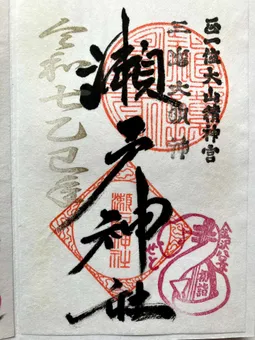 正一位大山積神宮
三島大明神
瀬戸神社
令和七乙巳年
瀬戸神社
金沢八景
初詣